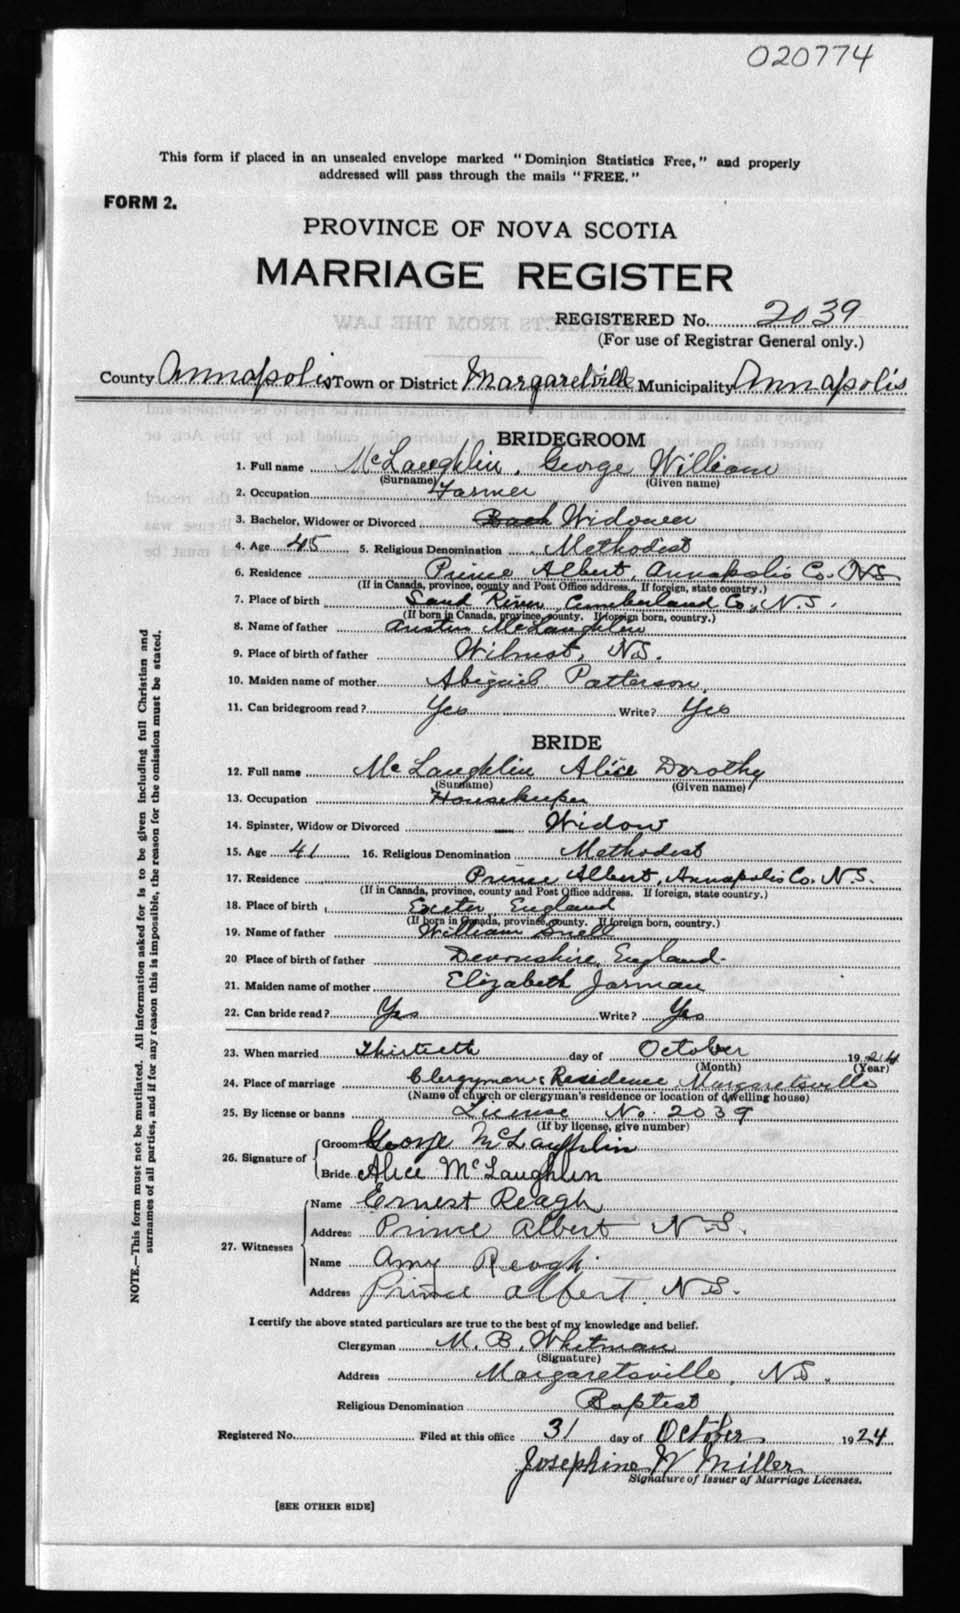 020774
This form if placed in an unsealed envelope marked "Dominion Statistics Free," and properly
addressed will pass through the mails "FREE."
FORM 2.
PROVINCE OF NOVA SCOTIA
MARRIAGE REGISTER
REGISTERED No. 2039
(For use of Registrar General only.)
County Annapolis Town or District Margaretville Municipality Annapolis
BRIDEGROOM
1. Full name McLaughlin, George William
(Surname) (Given name)
2. Occupation Farmer
3. Bachelor, Widower or Divorced Bach Widower
4. Age 45 5. Religious Denomination Methodist
6. Residence Prince Albert, Annapolis Co. N.S.
(If in Canada, province, county and Post Office address. If foreign, state country.)
7. Place of birth Sand River, Cumberland Co., N.S.
(If born in Canada, province, county. If foreign born, country.)
8. Name of father Austin McLaughlin
9. Place of birth of father Wilmot, N.S.
10. Maiden name of mother Abigail Patterson
11. Can bridegroom read? Yes Write? Yes
BRIDE
12. Full name McLaughlin Alice Dorothy
(Surname) (Given name)
13. Occupation Housekeeper
14. Spinster, Widow or Divorced Widow
15. Age 41 16. Religious Denomination Methodist
17. Residence Prince Albert, Annapolis Co. N.S.
(If in Canada, province, county and Post Office address. If foreign, state country.)
18. Place of birth Exeter England
(If born in Canada, province, county. If foreign born, country.)
19. Name of father William Snell
20 Place of birth of father Devonshire, England.
21. Maiden name of mother Elizabeth Jarman
22. Can bride read? Yes Write? Yes
23. When married Thirtieth day of October 1924
(Month) (Year)
24. Place of marriage Clergyman's Residence Margaretsville
(Name of church or clergyman's residence or location of dwelling house)
25. By license or banns License No. 2039
(If by license, give number)
26. Signature of Groom George McLaughlin
Bride Alice McLaughlin
27. Witnesses Name Ernest Reagh
Address Prince Albert N.S.
Name Amy Reagh
Address Prince Albert. N.S.
I certify the above stated particulars are true to the best of my knowledge and belief.
Clergyman M. B. Whitman
(Signature)
Address Margaretsville, N.S.
Religious Denomination Baptist
Registered No. Filed at this office 31 day of October 1924
Josephine W Miller
Signature of Issuer of Marriage Licenses.
[SEE OTHER SIDE]
NOTE.—This form must not be mutilated. All information asked for is to be given including full Christian and
surnames of all parties, and if for any reason this is impossible, the reason for the omission must be stated.